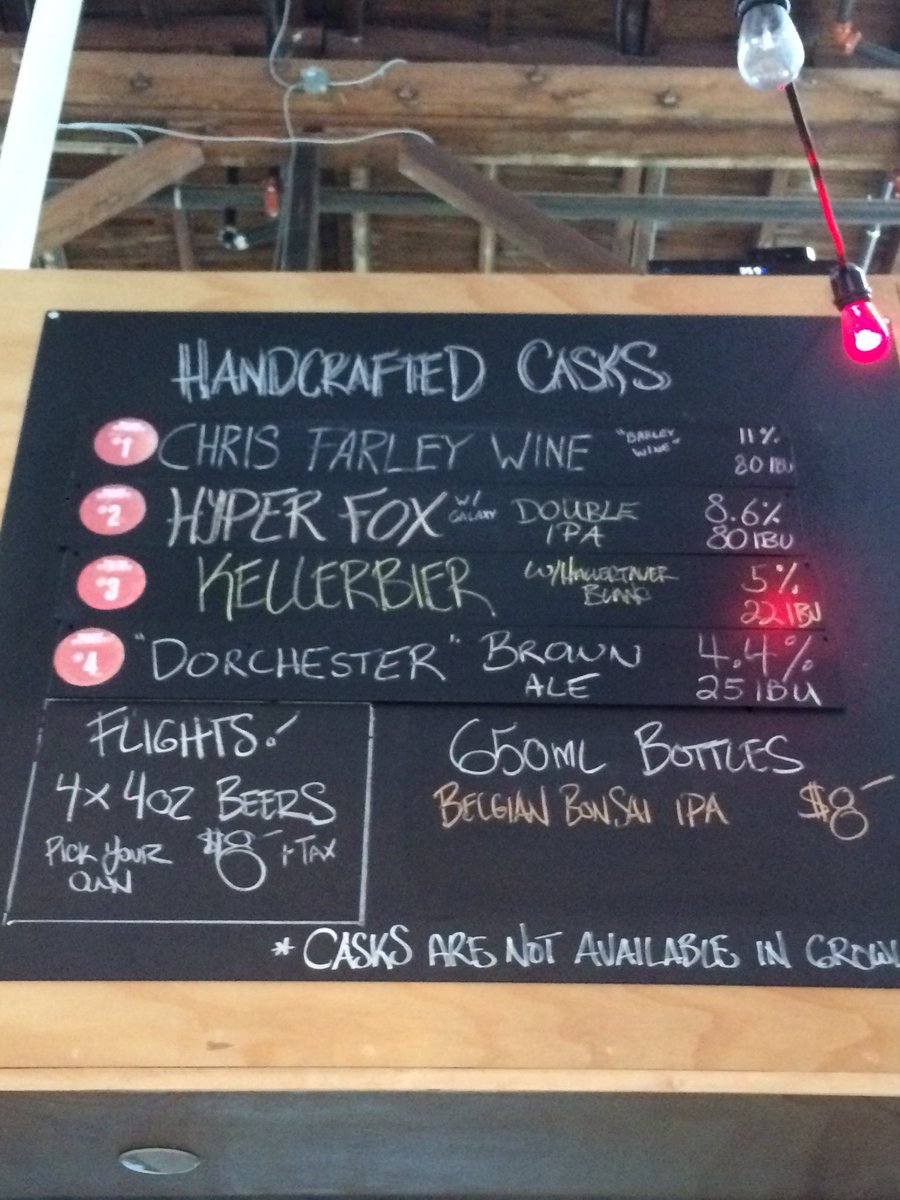 HANDCRAFTED CASKS
#1 CHRIS FARLEY WINE "BARLEY WINE" 11% 80 IBU
#2 HYPER FOX W/ GALAXY DOUBLE IPA 8.6% 80 IBU
#3 KELLERBIER W/HALLERTAUER BLANC 5% 22 IBU
#4 "DORCHESTER" BROWN ALE 4.4% 25 IBU
FLIGHTS!
4x4OZ BEERS
PICK YOUR OWN $8- +TAX
650ML BOTTLES
BELGIAN BONSAI IPA $8-
* CASKS ARE NOT AVAILABLE IN GROWL